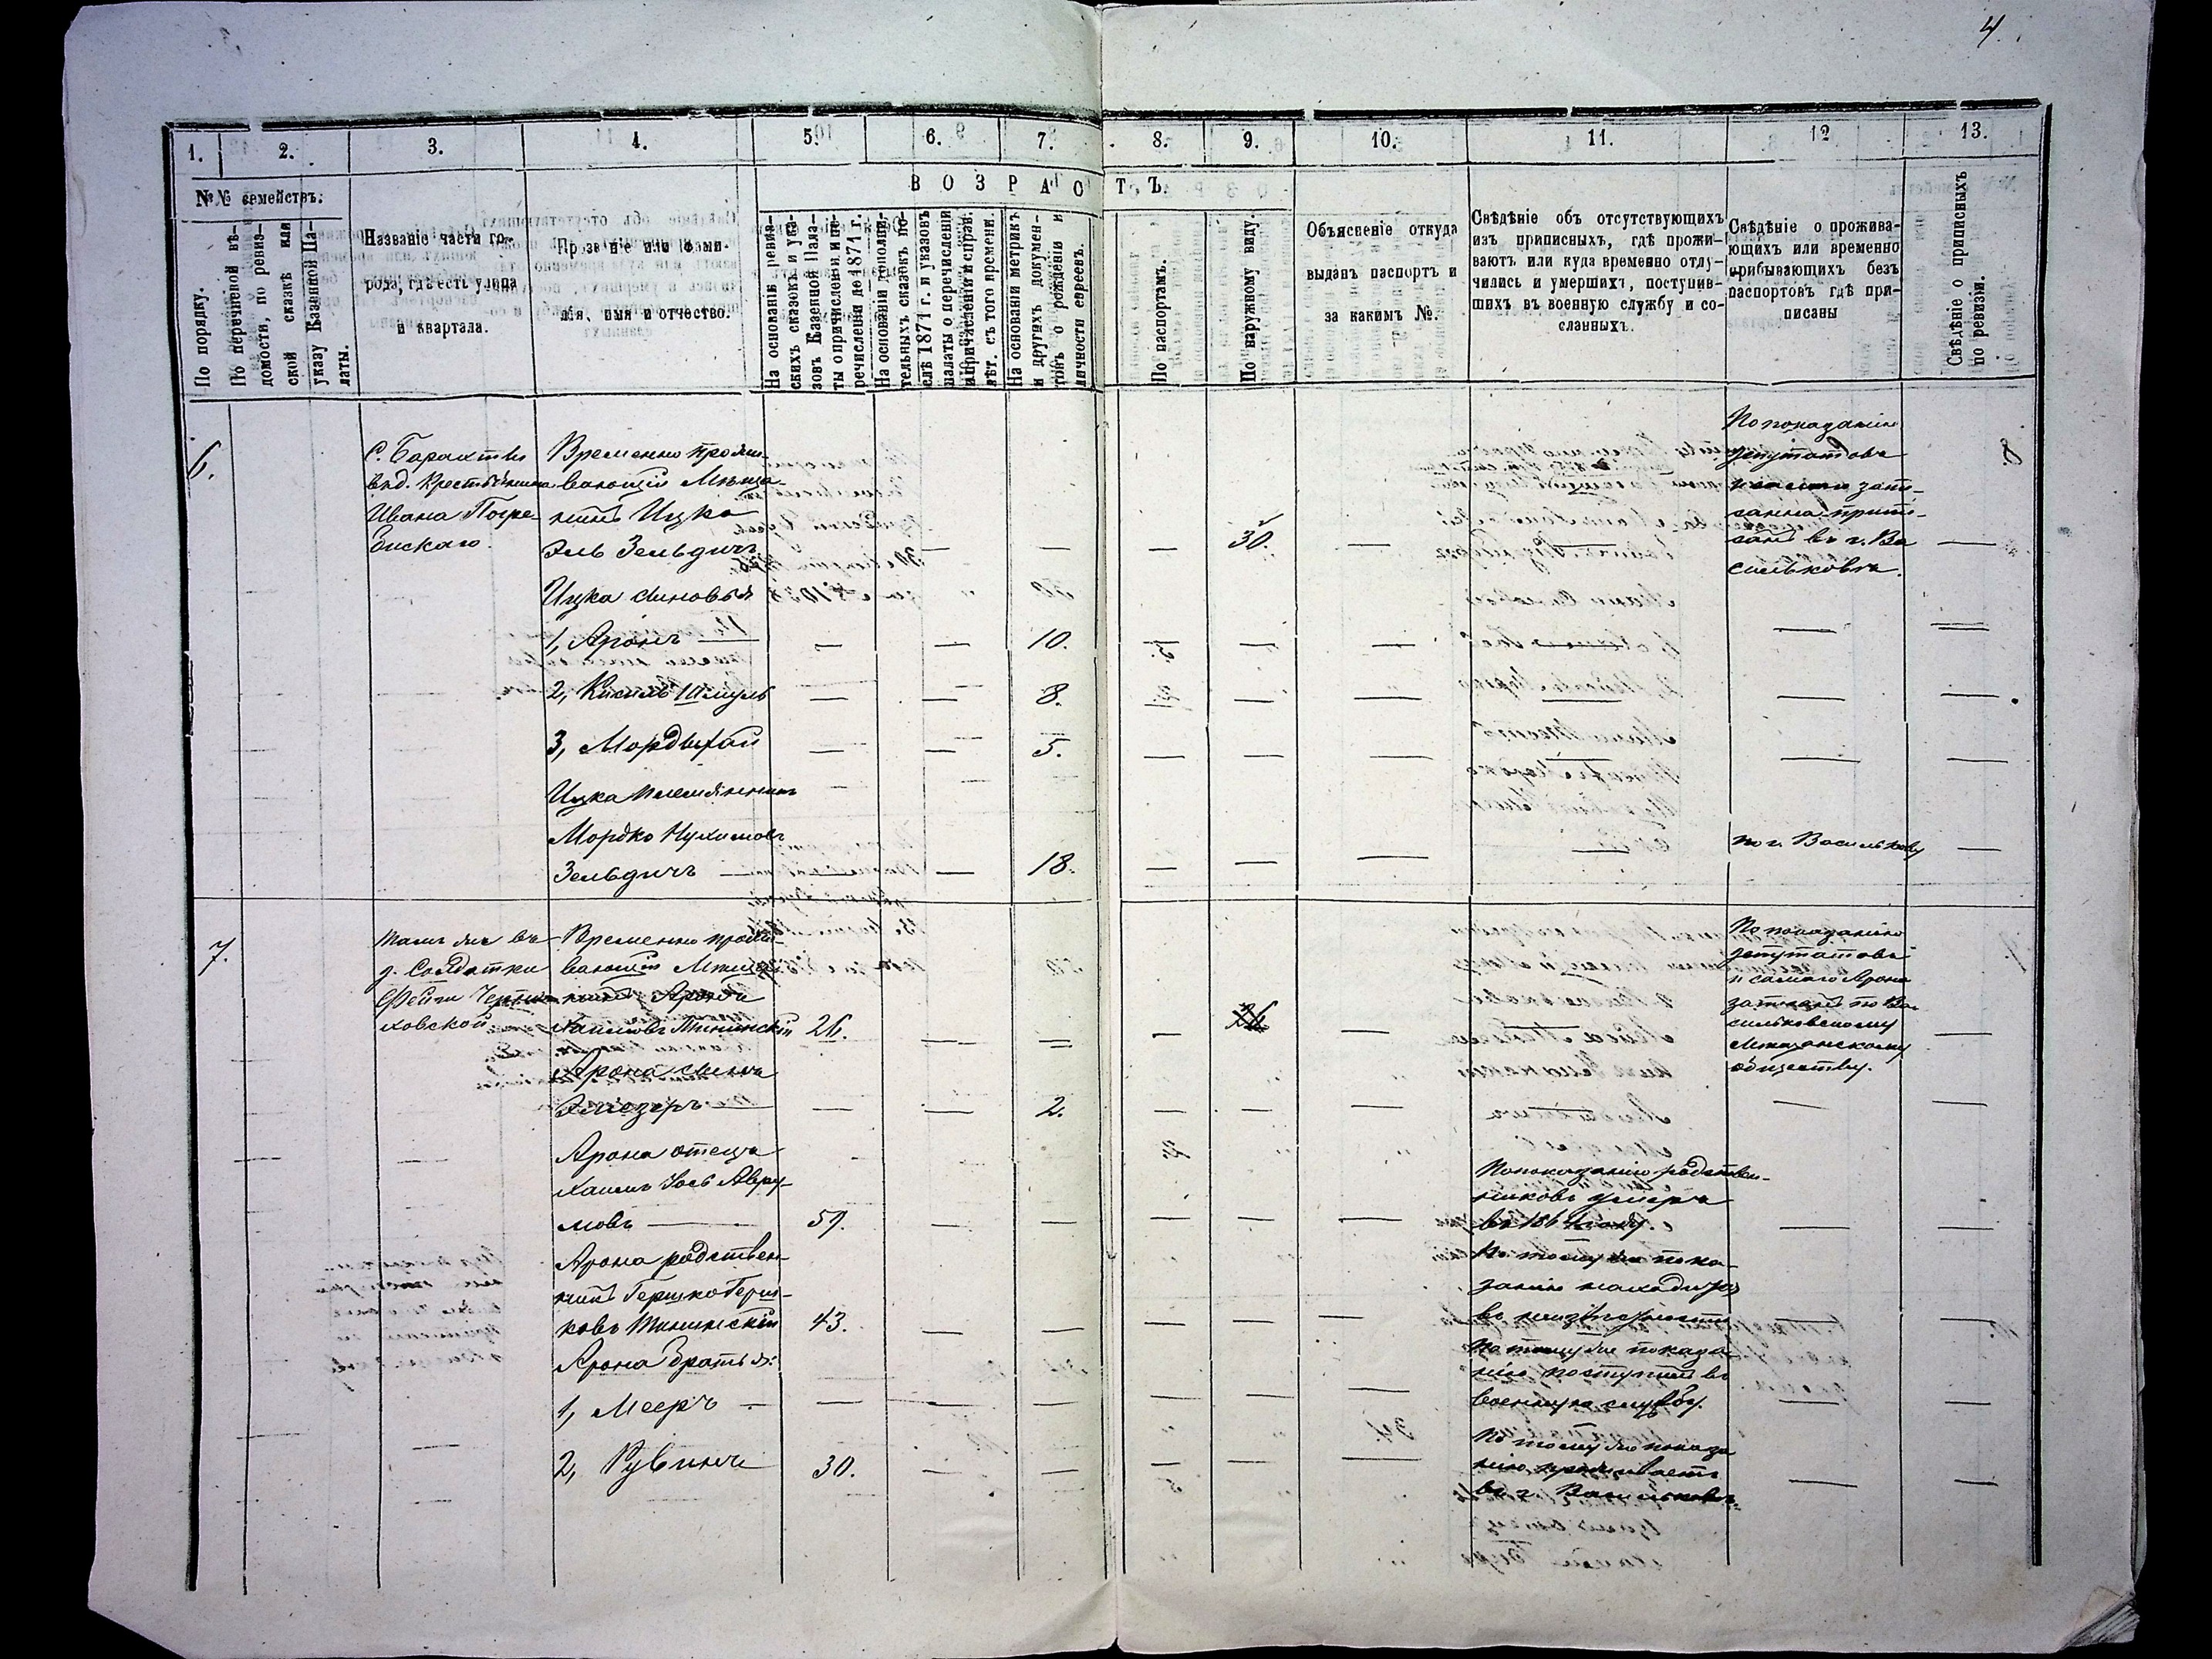 4.
1.
2.
3.
4.
5.
6.
7.
8.
9.
10.
11.
12
13.
№№ семействъ.
ВОЗРАСТЪ.
По порядку.
По перечневой вѣ-
домости, по ревиз-
ской сказкѣ или
указу Казенной Па-
латы.
Названіе части го-
рода, гдѣ есть улица
и квартала.
Прозваніе или фами-
лія, имя и отчество.
На основаніи ревиз-
скихъ сказокъ и ука-
зовъ Казенной Пала-
ты о причисленіи и пе-
речисленіи до 1871 г.
На основаніи дополни-
тельныхъ сказокъ по-
слѣ 1871 г. и указовъ
палаты о перечисленіи
и причисленіи и справк.
лѣт. съ того времени.
На основаніи метрикъ
и другихъ докумен-
товъ о рожденіи и
личности евреевъ.
По паспортамъ.
По наружному виду.
Объясненіе откуда
выданъ паспортъ и
за какимъ №.
Свѣдѣніе объ отсутствующихъ
изъ приписныхъ, гдѣ прожи-
ваютъ или куда временно отлу-
чились и умершихъ, поступив-
шихъ въ военную службу и со-
сланныхъ.
Свѣдѣніе о прожива-
ющихъ или временно
прибывающихъ безъ
паспортовъ гдѣ при-
писаны
Свѣдѣніе о приписныхъ
по ревизіи.
6.
С. Барахты
въ д. Крестьянина
Ивана Погре-
бискаго.
Временно прожи-
вающій Мѣща-
нинъ Ицко
Эль Зельдичъ
30.
По показанію
депутатовъ
запи-
санна припи-
санъ въ г. Ва
сильковѣ.
Ицка сыновья
1, Аронъ
10.
2, Кисиль Шмуль
8.
3, Мордыхай
5.
Ицка племянникъ
Мордко Нухимовъ
Зельдичъ
18.
по г. Василькову
7.
Тамъ же въ
д. Солдатки
Фейги Черня-
ховской
Временно прожи-
вающій Мѣща-
нинъ Аронъ
Хаимовъ Тининскій
26.
По показанію
депутатовъ
и самаго Арона
записанъ по Ва-
сильковскому
Мѣщанскому
обществу.
Арона сынъ
Эліезеръ
2.
Арона отецъ
Хаимъ Іось Авру-
мовъ
59.
По показанію родствен-
никовъ умеръ
въ 1864 году.
Арона родствен-
никъ Гершко Герш-
ковъ Тининскій
43.
По тому же пока-
занію находится
въ неизвѣстности
Арона братья:
1, Мееръ
По тому же показа
нію поступилъ въ
военную службу.
2, Рувинъ
30.
По тому же показа
нію проживаетъ
въ г. Васильковѣ